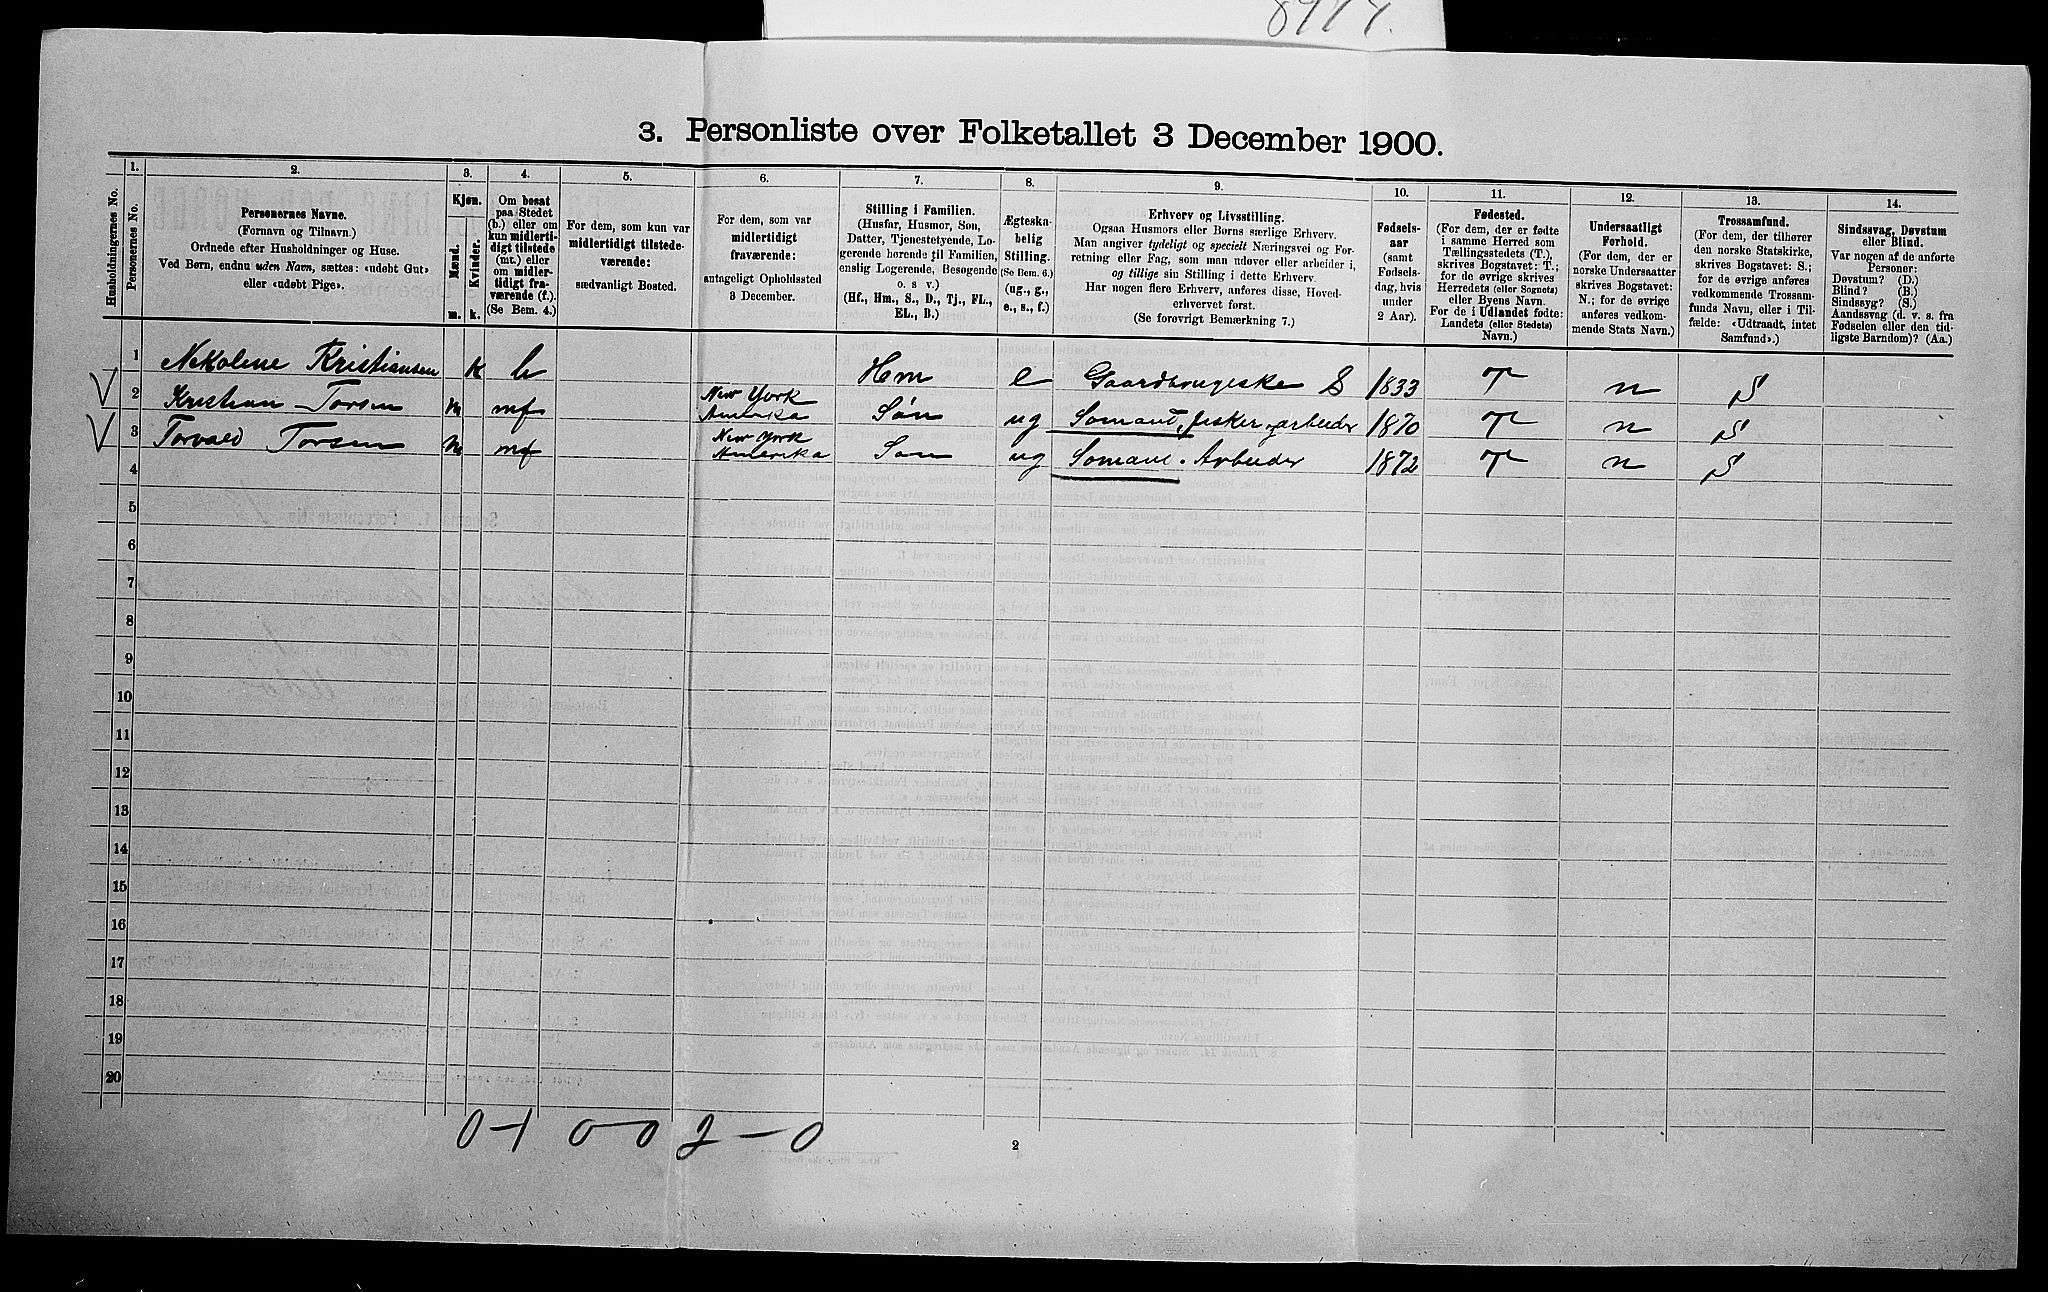 3. Personliste over Folketallet 3 December 1900.
1. 2. 3. 4. 5. 6. 7. 8. 9. 10. 11. 12. 13. 14.
Husholdningernes No.
Personernes No.
Personernes Navne.
(Fornavn og Tilnavn.)
Ordnede efter Husholdninger og Huse.
Ved Børn, endnu uden Navn, sættes: «udøbt Gut»
eller «udøbt Pige».
Kjøn.
Mænd.
Kvinder.
m. k.
Om bosat
paa Stedet
(b.) eller om
kun midlerti-
digt tilstede
(mt.) eller
om midler-
tidigt fra-
værende (f.).
(Se Bem. 4.)
For dem, som kun var
midlertidigt tilstede-
værende:
sædvanligt Bosted.
For dem, som var
midlertidigt
fraværende:
antageligt Opholdssted
3 December.
Stilling i Familien.
(Husfar, Husmor, Søn,
Datter, Tjenestetyende, Lo-
gerende hørende til Familien,
enslig Logerende, Besøgende
o. s v.)
(Hf., Hm., S., D., Tj., FL.,
EL., B.)
Ægteska-
belig
Stilling.
(Se Bem. 6.)
(ug., g.,
e., s., f.)
Erhverv og Livsstilling.
Ogsaa Husmors eller Børns særlige Erhverv.
Man angiver tydeligt og specielt Næringsvei og For-
retning eller Fag, som man udøver eller arbeider i,
og tillige sin Stilling i dette Erhverv.
Har nogen flere Erhverv, anføres disse, Hoved-
erhvervet først.
(Se forøvrigt Bemærkning 7.)
Fødsels-
aar
(samt
Fødsels-
dag, hvis
under
2 Aar).
Fødested.
(For dem, der er fødte
i samme Herred som
Tællingsstedets (T.),
skrives Bogstavet: T.;
for de øvrige skrives
Herredets (eller Sognets)
eller Byens Navn.
For de i Udlandet fødte:
Landets (eller Stedets)
Navn.)
Undersaatligt
Forhold.
(For dem, der er
norske Undersaatter
skrives Bogstavet:
N.; for de øvrige
anføres vedkom-
mende Stats Navn.)
Trossamfund.
(For dem, der tilhører
den norske Statskirke,
skrives Bogstavet: S.;
for de øvrige anføres
vedkommende Trossam-
funds Navn, eller i Til-
fælde: «Udtraadt, intet
Samfund».)
Sindssvag, Døvstum
eller Blind.
Var nogen af de anførte
Personer:
Døvstum? (D.)
Blind? (B.)
Sindssyg? (S.)
Aandssvag (d. v. s. fra
Fødselen eller den tid-
ligste Barndom)? (Aa.)
1 Nekolene Kristiansen k b Hm e Gaardbrugeske S 1833 T n S
2 Kristian Torsen m mf New York Amerika Søn ug Somand, fisker, arbeider 1870 T n S
3 Torvald Torsen m mf New York Amerika Søn ug Somand. Arbeider 1872 T n S
4
5
6
7
8
9
10
11
12
13
14
15
16
17
18
19
20
0-1 0-0 2-0
2